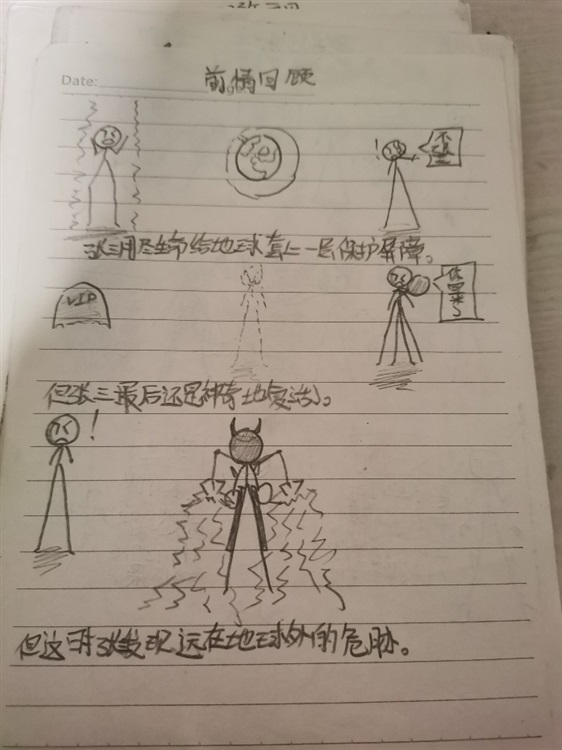 Date:
前情回顾
不要
张三用尽生命给地球套上一层保护屏障。
VIP
你回来了
但张三最后还是神奇地复活。
但这时张发现远在地球外的危胁。